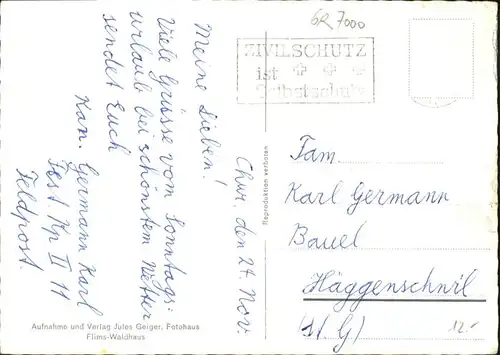 GR 7000
ZIVILSCHUTZ
ist
Selbstschutz
Chur, den 24. Nov.
Meine Lieben!
Viele Grüsse vom Sonntags-
urlaub bei schönstem Wetter
sendet Euch
Kan. Germann Karl
Fest Kp II 11
Feldpost.
Reproduktion verboten
Fam.
Karl Germann
Bauel
Häggenschwil
(St. G)
12.-
Aufnahme und Verlag Jules Geiger, Fotohaus
Flims-Waldhaus